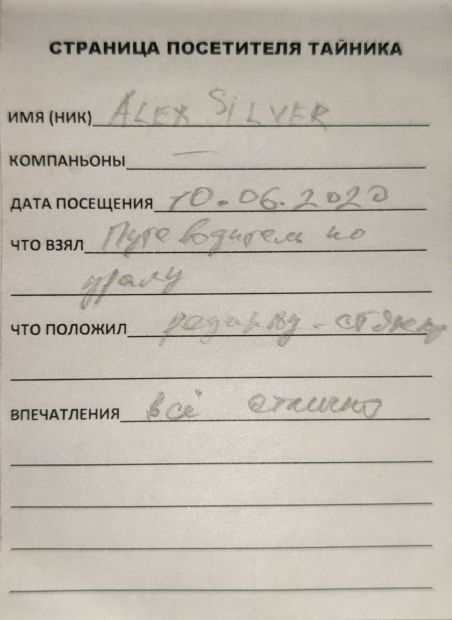 СТРАНИЦА ПОСЕТИТЕЛЯ ТАЙНИКА
ИМЯ (НИК) ALEX SILVER
КОМПАНЬОНЫ —
ДАТА ПОСЕЩЕНИЯ 10.06.2020
ЧТО ВЗЯЛ Путеводитель по
уралу
ЧТО ПОЛОЖИЛ резинку - стяжку
ВПЕЧАТЛЕНИЯ всё отлично